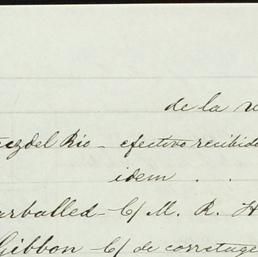 de la
del Rio - efectivo recibido
idem . .
Carballed - C/ M. R. H
Gibbon - C/ de corretage